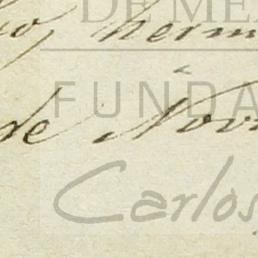 DE ME
o, herm
FUNDA
de Nov
Carlos